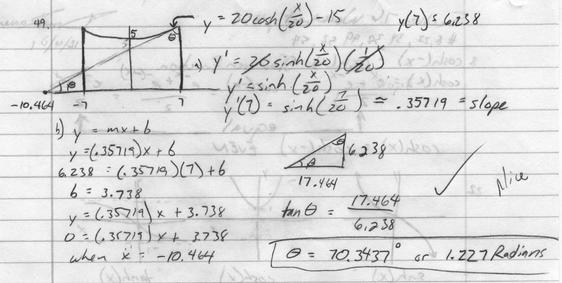 49.
y = 20cosh(x/20) - 15
y(7) = 6.238
5
5
θ
θ
-10.464
-7
7
a) y' = 20sinh(x/20)(1/20)
y' = sinh(x/20)
y'(7) = sinh(7/20) ≈ .35719 = slope
b) y = mx+b
y = (.35719)x + b
6.238 = (.35719)(7) + b
b = 3.738
y = (.35719)x + 3.738
0 = (.35719)x + 3.738
when x = -10.464
θ
θ
6.238
17.464
tan θ = 17.464/6.238
✓ Nice
θ = 70.3437° or 1.227 Radians